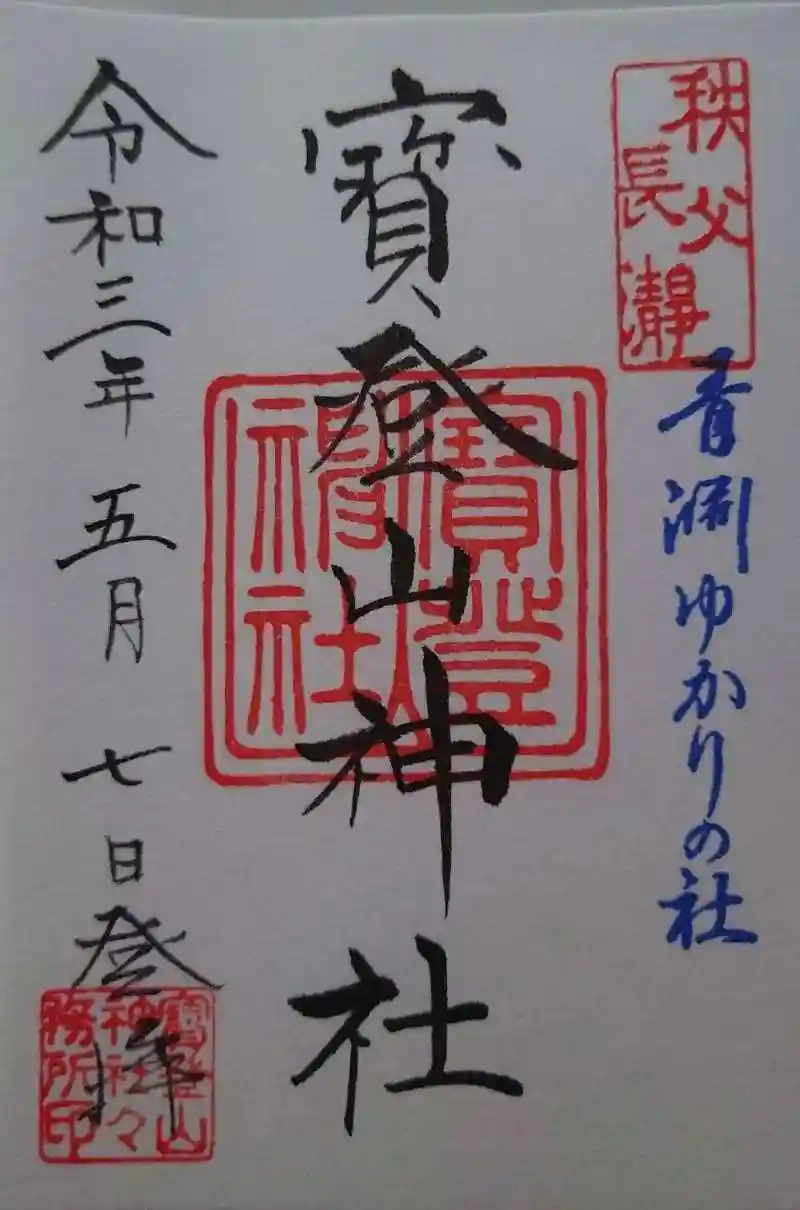 秩父
長瀞
青淵ゆかりの社
寳登山神社
寳登山
神社
令和三年五月七日登拝
寳登山
神社々
務所印